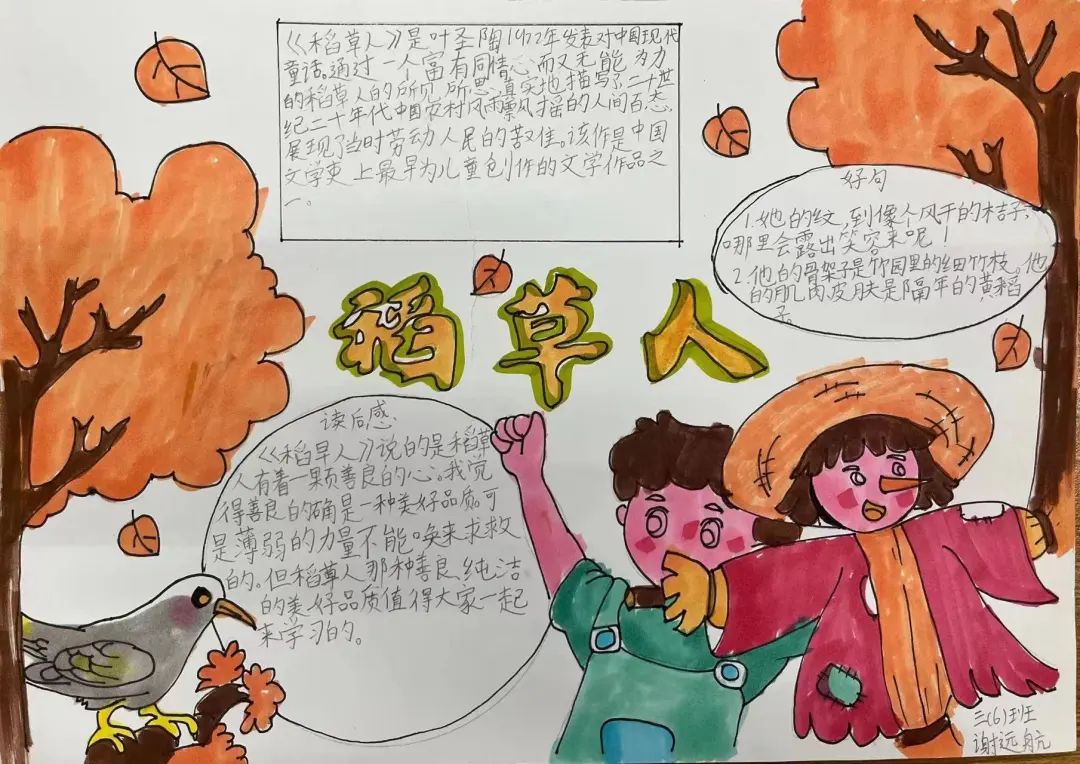 《稻草人》是叶圣陶1922年发表对中国现代
童话。通过一个富有同情心而又无能为力
的稻草人的所见所思,真实地描写了二十世
纪二十年代中国农村风雨飘风摇的人间百态,
展现了当时劳动人民的苦难。该作是中国
文学吏上最早为儿童创作的文学作品之
一。
好句
1.她的纹,到像个风干的桔子,
哪里会露出笑容来呢!
2.他的骨架子是竹园里的细竹枝。他
的肌肉皮肤是隔年的黄稻
稻草人
读后感
《稻早人》说的是稻草
人有着一颗善良的心。我觉
得善良的确是一种美好品质,可
是薄弱的力量不能唤来求救
的。但稻草人那种善良、纯洁
的美好品质值得大家一起
来学习的。
三(6)班
谢远航